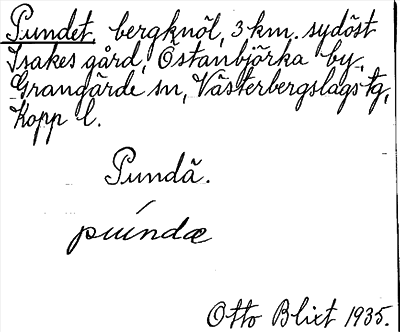 Pundet, bergknöl, 3 km. sydöst
Isakes gård, Östanbjörka by,
Grangärde sn, Västerbergslags tg,
Kopp. l.
Pundä.
puíndæ
Otto Blixt 1935.